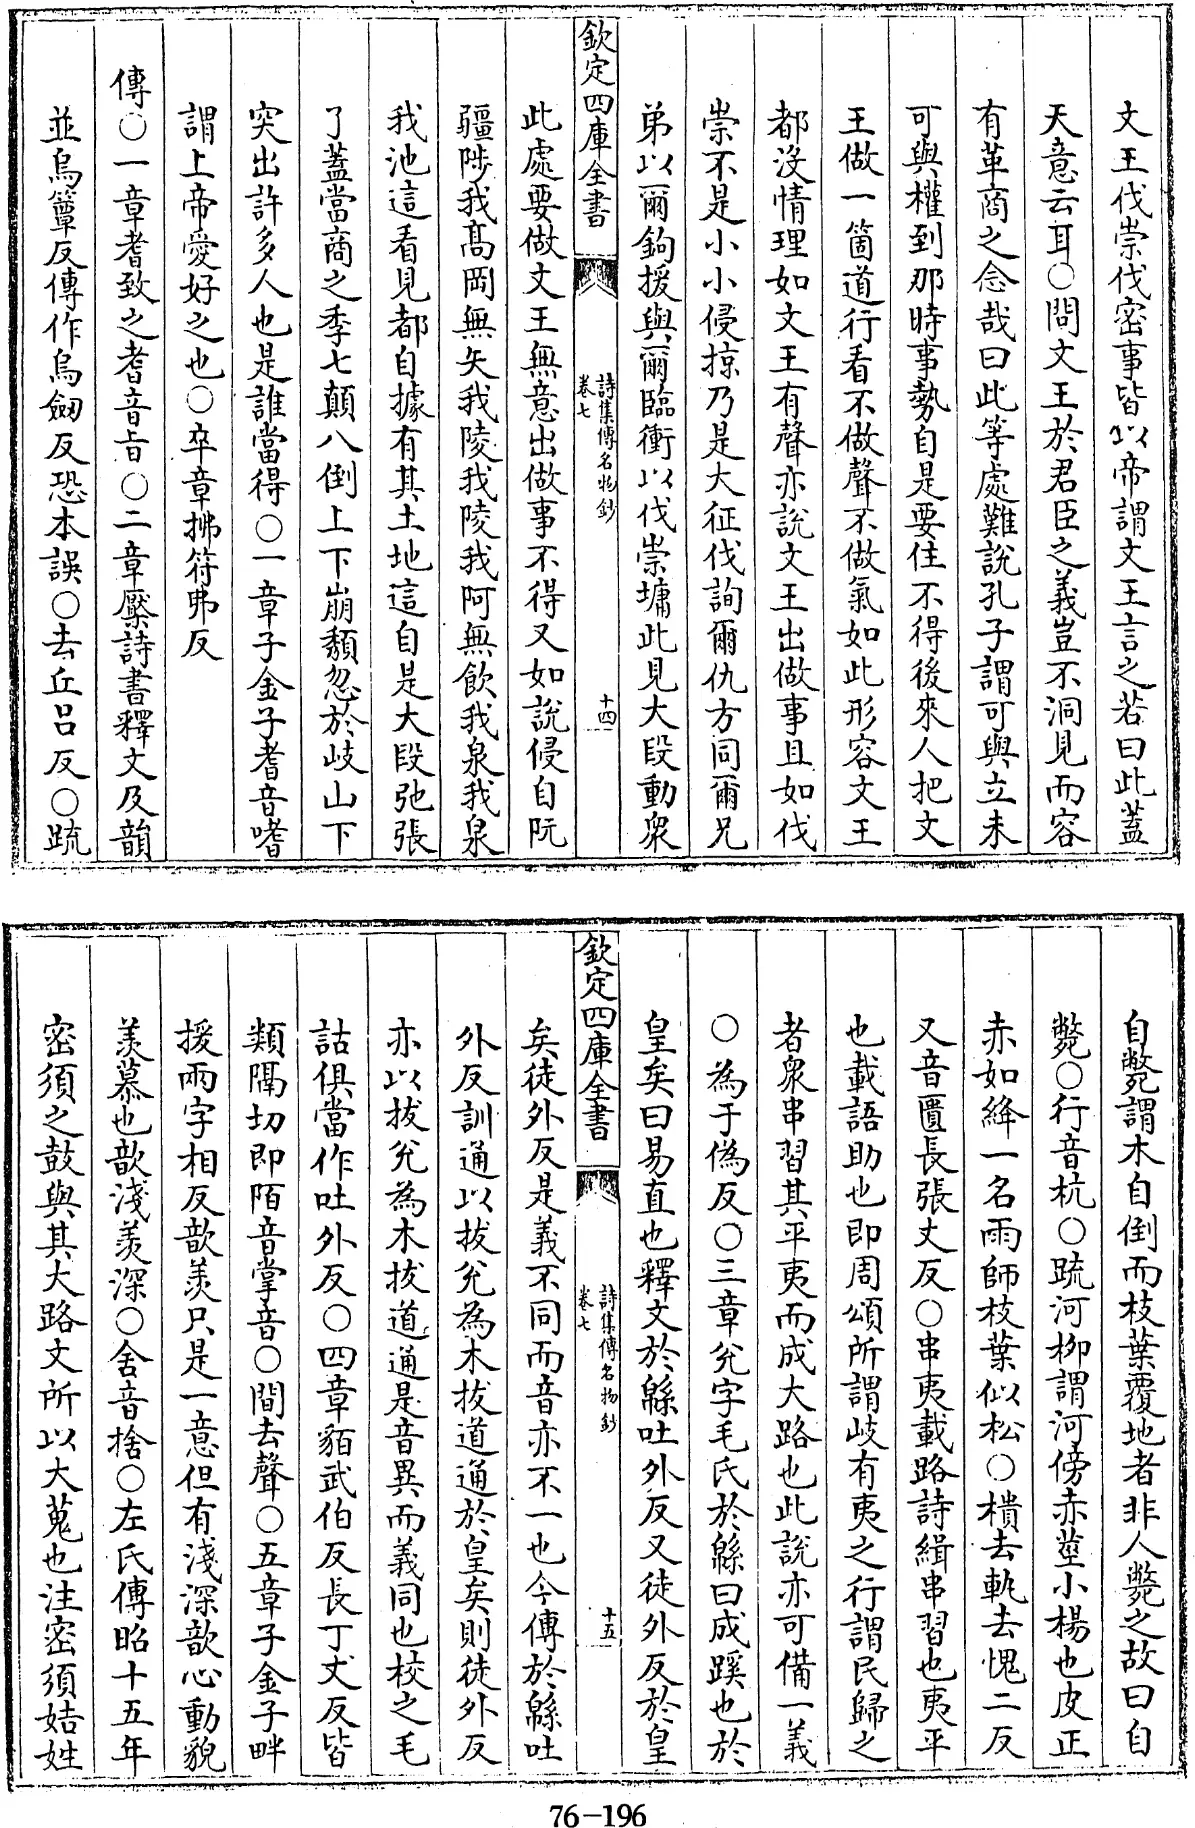 文王伐崇伐密事皆以帝謂文王言之若曰此蓋
天意云耳○問文王於君臣之義豈不洞見而容
有革商之念哉曰此等處難説孔子謂可與立未
可與權到那時事勢自是要住不得後來人把文
王做一箇道行看不做聲不做氣如此形容文王
都没情理如文王有聲亦説文王出做事且如伐
崇不是小小侵掠乃是大征伐詢爾仇方同爾兄
弟以爾鉤援與爾臨衝以伐崇墉此見大段動衆
欽定四庫全書
詩集傳名物鈔
卷七
十四
此處要做文王無意出做事不得又如説侵自阮
疆陟我髙岡無矢我陵我陵我阿無飲我泉我泉
我池這看見都自據有其土地這自是大段弛張
了蓋當商之季七顛八倒上下崩頽忽於岐山下
突出許多人也是誰當得○一章子金子耆音嗜
謂上帝愛好之也○卒章拂符弗反
傳○一章耆致之耆音㫖○二章檿詩書釋文及韻
並烏簟反傳作烏劒反恐本誤○去丘吕反○疏
自斃謂木自倒而枝葉覆地者非人斃之故曰自
斃○行音杭○疏河栁謂河傍赤莖小楊也皮正
赤如絳一名雨師枝葉似松○樻去軌去愧二反
又音匱長張丈反○串夷載路詩緝串習也夷平
也載語助也即周頌所謂岐有夷之行謂民歸之
者衆串習其平夷而成大路也此説亦可備一義
○為于偽反○三章兊字毛氏於緜曰成蹊也於
皇矣曰易直也釋文於緜吐外反又徒外反於皇
欽定四庫全書
詩集傳名物鈔
卷七
十五
矣徒外反是義不同而音亦不一也今傳於緜吐
外反訓通以拔兊為木拔道通於皇矣則徒外反
亦以拔兊為木拔道通是音異而義同也校之毛
詁俱當作吐外反○四章貊武伯反長丁丈反皆
類隔切即陌音掌音○間去聲○五章子金子畔
援兩字相反歆羨只是一意但有淺深歆心動貌
羨慕也歆淺羨深○舍音捨○左氏傳昭十五年
密須之鼓與其大路文所以大蒐也注密須姞姓
76-196